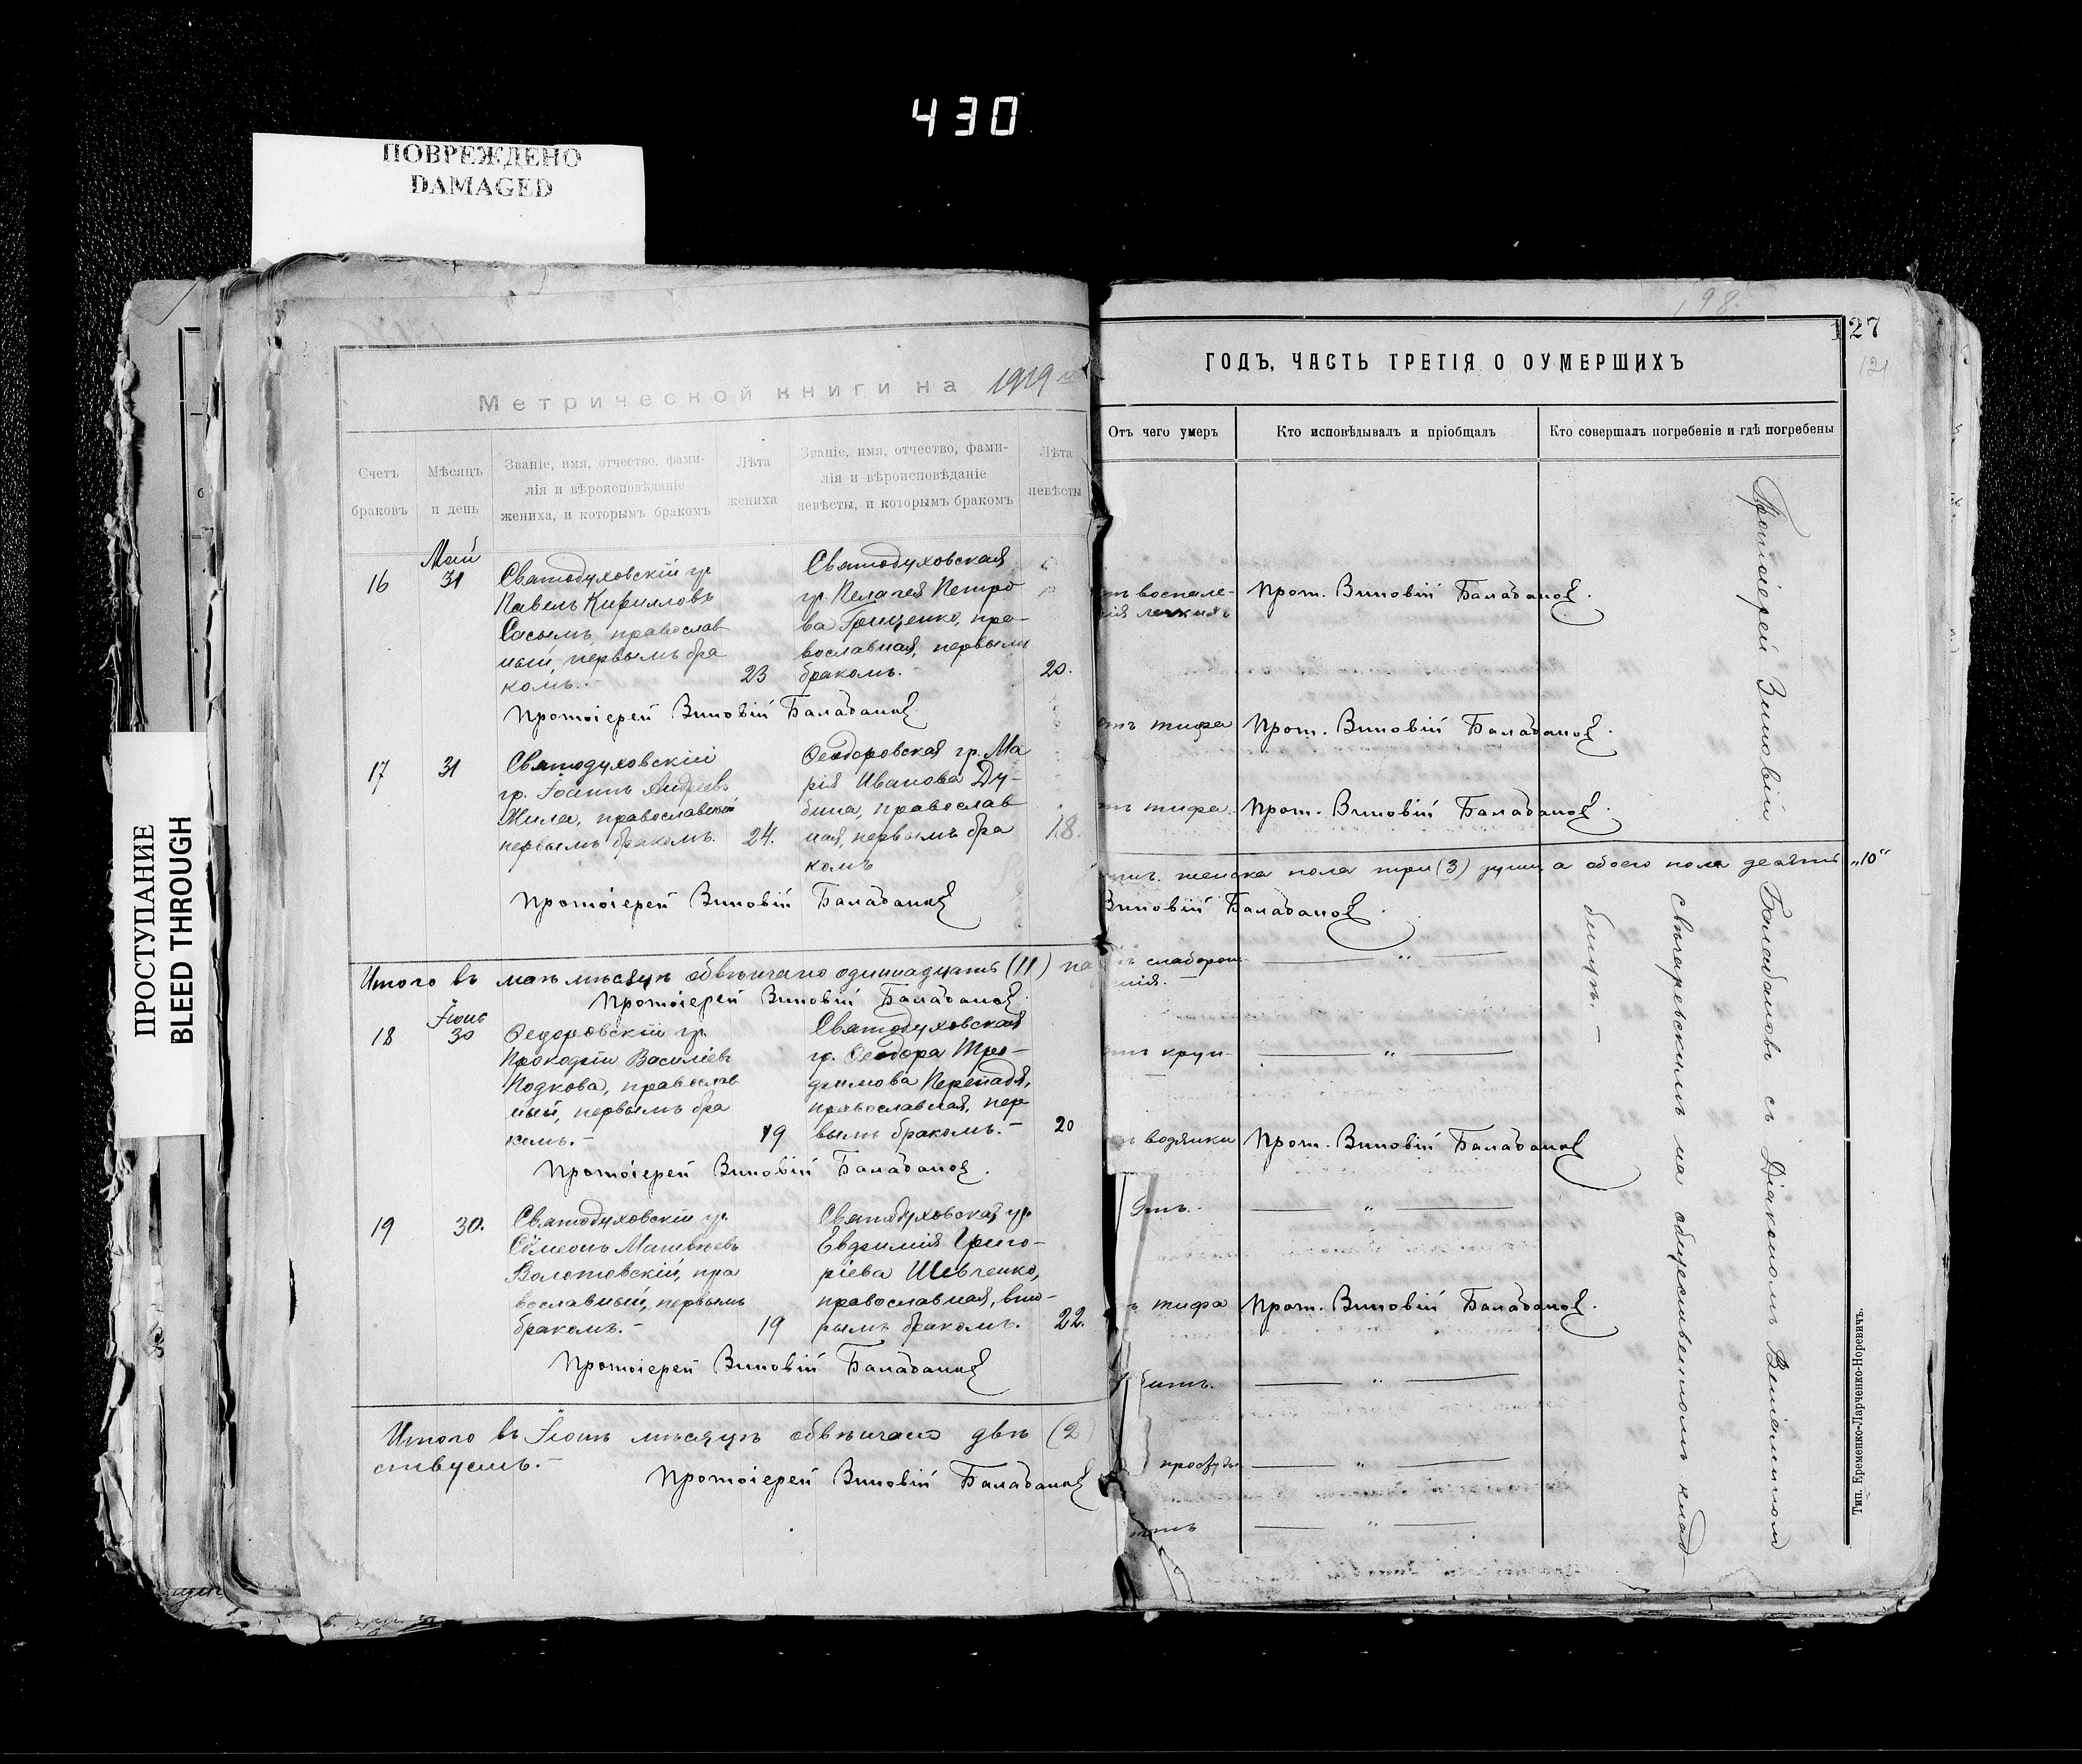 430
ПОВРЕЖДЕНО
DAMAGED
ПРОСТУПАНИЕ
BLEED THROUGH
Метрической книги на 1919
Счетъ браковъ
Мѣсяцъ и день
Званіе, имя, отчество, фами-
лія и вѣроисповѣданіе
жениха, и которымъ бракомъ
Лѣта жениха
Званіе, имя, отчество, фами-
лія и вѣроисповѣданіе
невѣсты, и которымъ бракомъ
Лѣта невѣсты
Май
16 31
Святодуховскій гр.
Павелъ Кирилловъ
Сасымъ, православ
ный, первымъ бра
комъ.-
23
Святодуховская
гр. Пелагея Петро
ва Грищенко, пра-
вославная, первым
бракомъ.-
20.
Протоіерей Зиновій Балабанов
17 31
Святодуховскій
гр. Іоаннъ Андреевъ
Жила, православный
первымъ бракомъ.
24.
Ѳеодоровская гр. Ма
рія Иванова Ду-
бина, православ
ная, первымъ бра
комъ
18.
Протоіерей Зиновій Балабанов
Итого въ маѣ мѣсяцѣ обвѣнчано одиннадцать (11) па
Протоіерей Зиновій Балабанов
Іюнь
18 30
Ѳедоровскій гр.
Прокофій Василіевъ
Подкова, православ
ный, первымъ бра
комъ.-
19
Святодуховская
гр. Ѳеодора Тро-
фимова Перепадя,
православная, пер
вымъ бракомъ.-
20
Протоіерей Зиновій Балабанов.
19 30.
Святодуховскій гр.
Сѵмеонъ Матвѣевъ
Волотовскій, пра
вославный, первымъ
бракомъ.-
19
Святодуховская гр.
Евфимія Григо-
ріева Шевченко,
православная, вто-
рымъ бракомъ.
22.
Протоіерей Зиновій Балабанов
Итого въ Іюнѣ мѣсяцѣ обвѣнчано двѣ (2)
ствуемъ.-
Протоіерей Зиновій Балабанов
198.
127
ГОДЪ, ЧАСТЬ ТРЕТІЯ О ОУМЕРШИХЪ
Отъ чего умеръ
Кто исповѣдывалъ и пріобщалъ
Кто совершалъ погребеніе и гдѣ погребены
воспале-
легкихъ
Прот. Зиновій Балабанов.
тифа Прот. Зиновій Балабанов.
тифа. Прот. Зиновій Балабанов.
женска пола три (3) души, а обоего пола десять „10“
Зиновій Балабанов.
слаборож-
— „ —
круп-
— „ —
водянки Прот. Зиновій Балабанов
— „ —
тифа Прот. Зиновій Балабанов.
— „ —
простуды — „ —
— „ —
Протоіерей Зиновій Балабановъ съ Діакономъ Веніаминомъ
на общественномъ клад-
бищѣ.-
Тип. Еременко-Ларченко-Норевичъ.